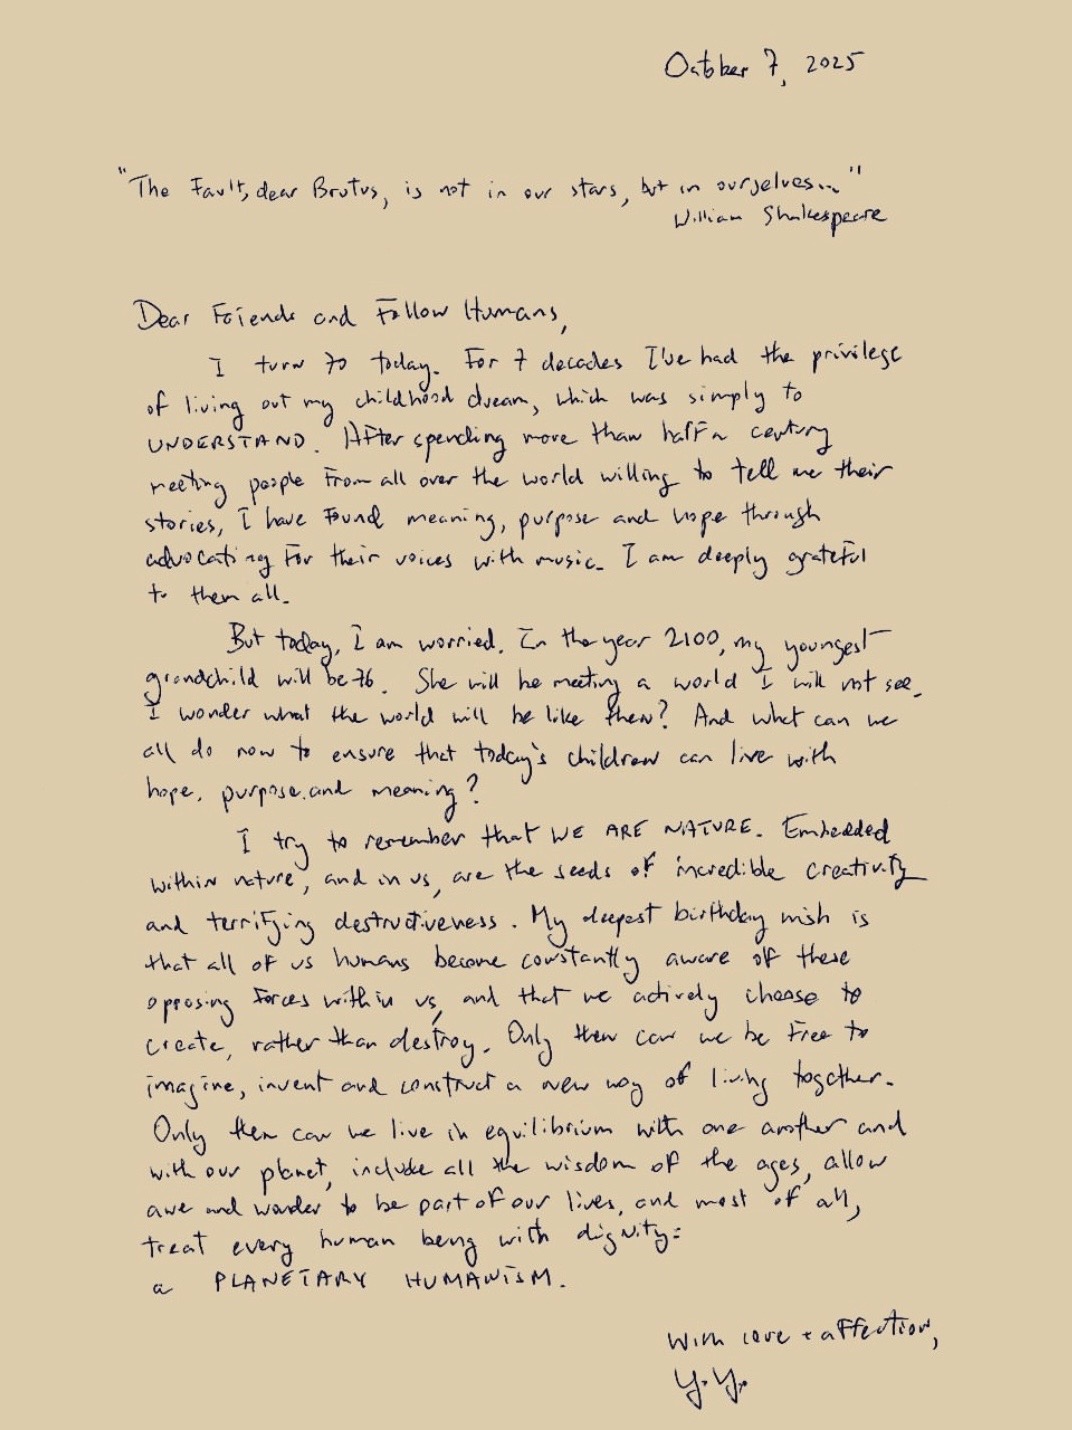 October 7, 2025
"The Fault, dear Brutus, is not in our stars, but in ourselves..."
William Shakespeare
Dear Friends and Fellow Humans,
I turn 70 today. For 7 decades I've had the privilege
of living out my childhood dream, which was simply to
UNDERSTAND. After spending more than half a century
meeting people from all over the world willing to tell me their
stories, I have found meaning, purpose and hope through
advocating for their voices with music. I am deeply grateful
to them all.
But today, I am worried. In the year 2100, my youngest
grandchild will be 76. She will be meeting a world I will not see.
I wonder what the world will be like then? And what can we
all do now to ensure that today's children can live with
hope, purpose, and meaning?
I try to remember that WE ARE NATURE. Embedded
within nature, and in us, are the seeds of incredible creativity
and terrifying destructiveness. My deepest birthday wish is
that all of us humans become constantly aware of these
opposing forces within us, and that we actively choose to
create, rather than destroy. Only then can we be free to
imagine, invent and construct a new way of living together.
Only then can we live in equilibrium with one another and
with our planet, include all the wisdom of the ages, allow
awe and wonder to be part of our lives, and most of all,
treat every human being with dignity:
a PLANETARY HUMANISM.
With love + affection,
Y.Y.